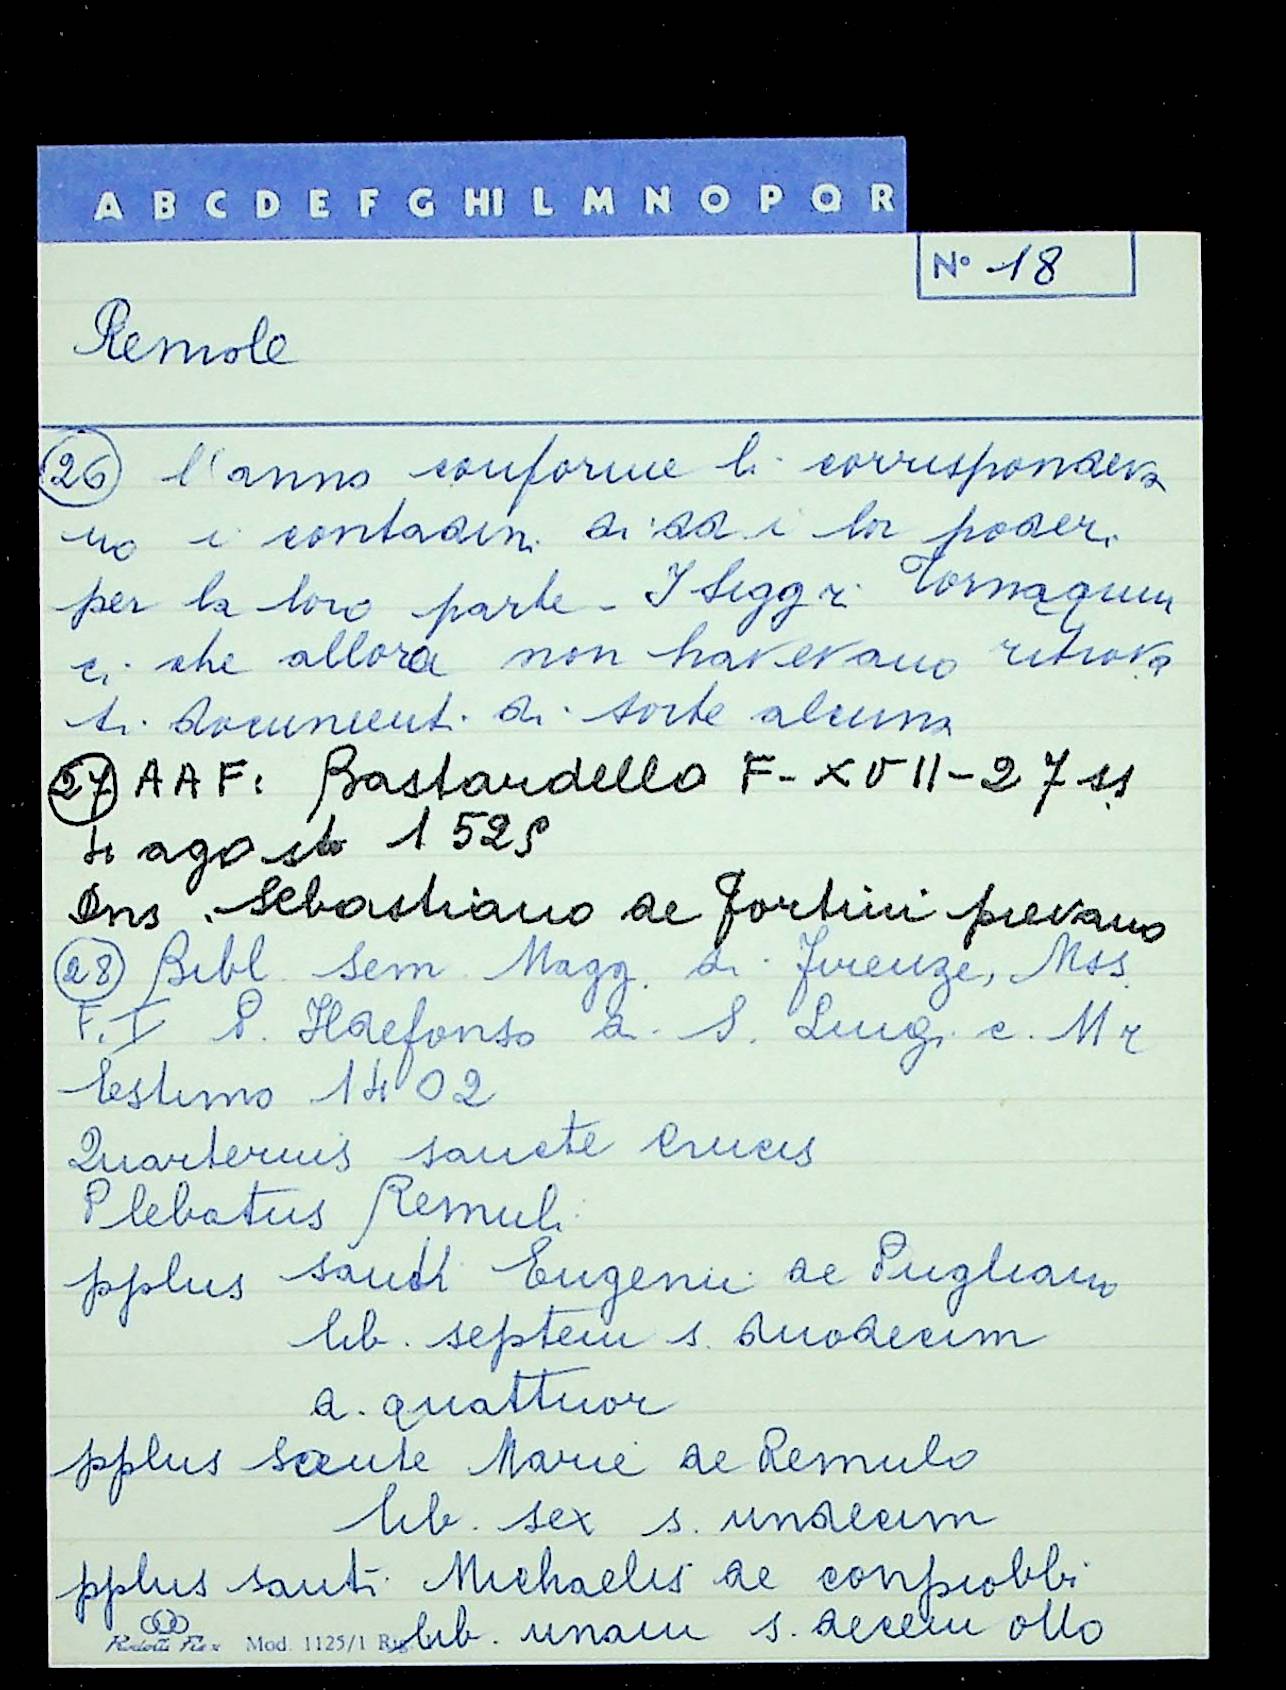 A B C D E F G HI L M N O P Q R
N° 18
Remole
26 l'anno conforme li corrispondeva
no i contadini di dd i lor poderi
per la loro parte - I Sigg ri Tornaquin
ci che allora non havevano ritrova
ti documenti di sorte alcuna
27 AAF: Bastardello F-XVII-27 ss
4 agosto 1529
Dns Sebastiano de Fortini pievano
28 Bibl. Sem Magg. di Firenze, Mss.
F. I P. Ildefonso di S. Luigi c.
Estimo 1402
Quarterius sancte Crucis
Plebatus Remuli
pplus santi Eugenii de Pugliano
lib. septem s. duodecim
d. quattuor
pplus sante Marie de Remulo
lib. sex s. undecim
pplus santi Michaelis de conpiobbi
lib. unam s. decem otto
Mod. 1125/1 Rig.